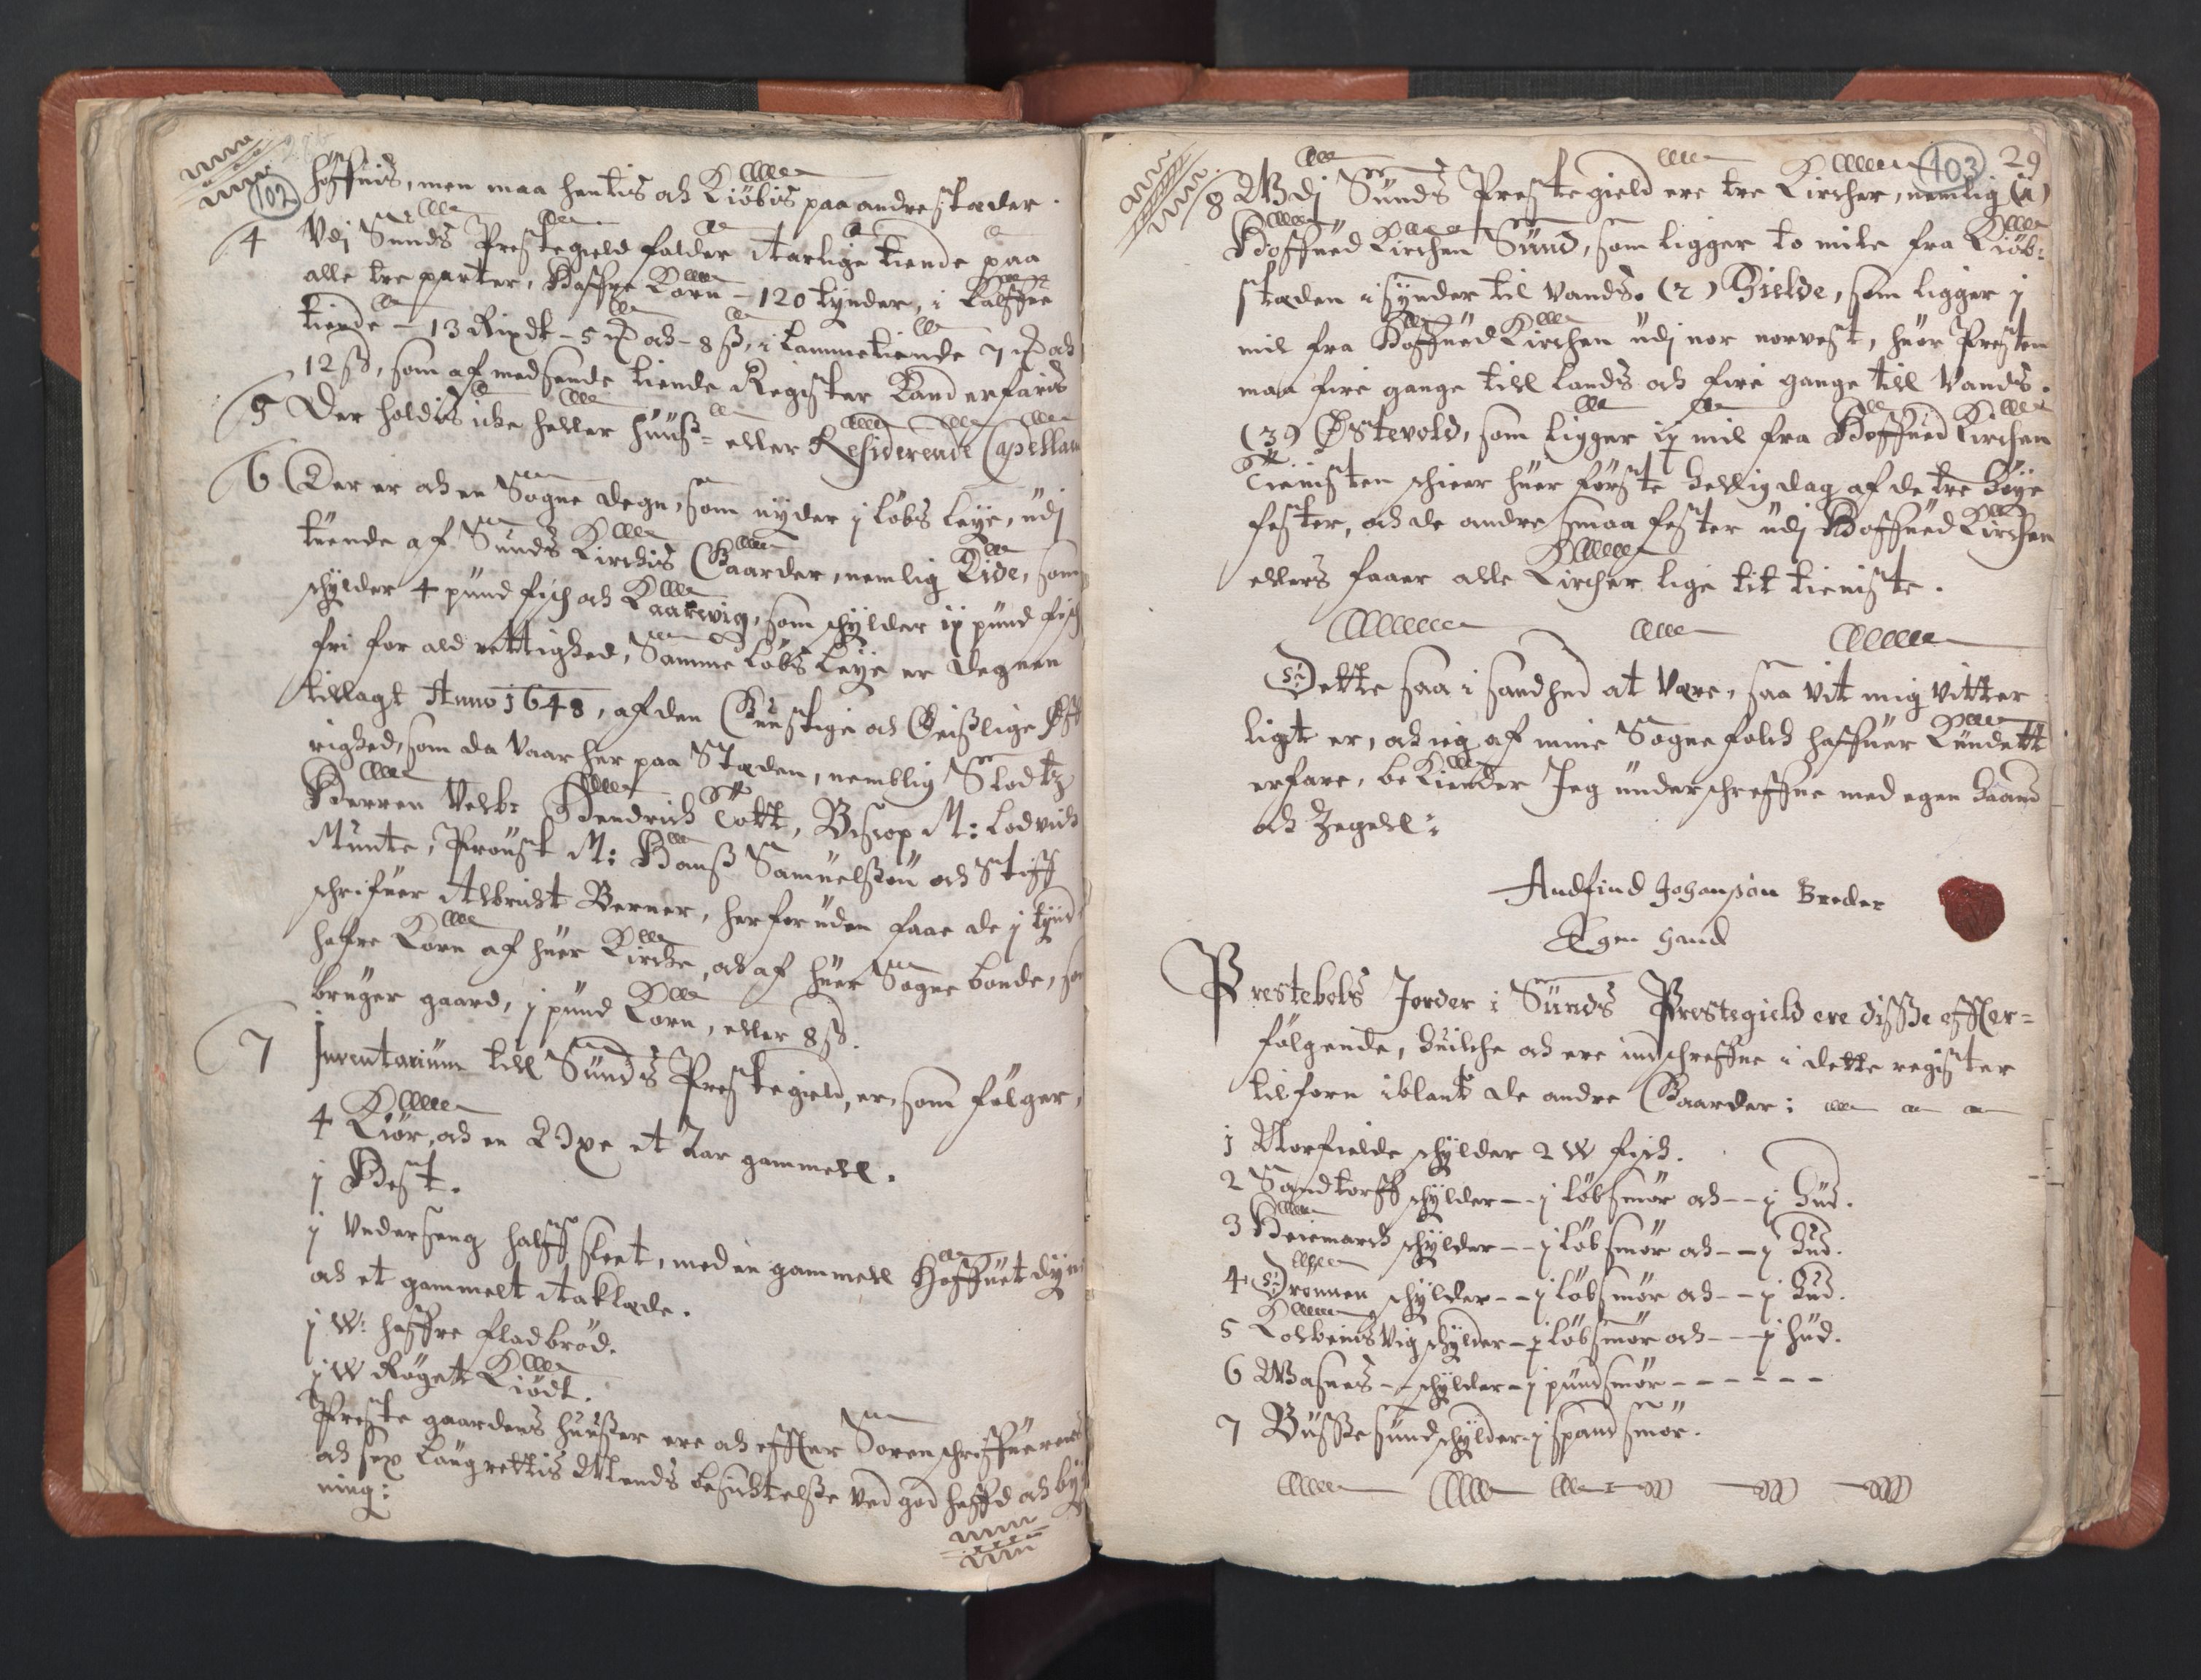 102
høffuis, men maa hentis och Kiøbis paa andre stæder.
4 Udj Sunds Prestegield falder Aarlige tiende paa
alle tre parter, Haffre Korn – 120 tynder, i Kalffve
tiende – 13 Rixdlr – 5 ℔ och – 8 ß, i Lammetiende 7 ℔ och
12 ß, som af medsende tiende Register Kand erfaris
5 Der holdis icke heller Huuß= eller Residerende Capellan
6 Der er och en Sogne Degn, som nyder j løbs leye, udj
tuende af Sunds Kirchis Gaarder, nemlig Eide, som
schylder 4 pund fisch och Kaarwig, som schylder ij pund fisch
fri for ald rettighed, Samme Løbs leye er degnen
tillagt Anno 1648, af den Gunstige och Geistlige Øff
righed, som da vaar her paa Stæden, nemblig Slodtz
Herren Velb: Hendrich Tott, Biscop M: Lodvich
Munte, Proust M: Hanß Samuelßøn och Stiff
schrifuer Albricht Berner, herforuden faar de j tynd
hafre Korn af huer Kirche, och af huer Sogne bonde, som
bruger gaard, j pund Korn, eller 8 ß.
7 Inventarium till Sunds Prestegield, er som følger,
4 Kiør, och en Qvie et Aar gammell.
j Hest.
j Underseng halff sleet, med en gammell Hoffuet dyne
och et gammelt Aaklæde.
j W: haffre fladbrød.
j W Røget Kiødt.
Preste gaardens huußer ere och effter Sorenschriffuerens
och sex Laugrettis Mends besichtelße ved god heffd och byg
ning:
103 29
8 Udj Sunds Prestegield ere tre Kircher, nemlig (1)
Hoffued Kirchen Sund, som ligger to mile fra Kiøb=
stæden i synder til vands. (2) Gielde, som ligger j
mil fra Hoffued Kirchen udj nor norvest, huor Presten
maa fire gange till lands och fire gange till Vands.
(3) Østevold, som ligger ij mil fra Hoffued Kirchen
Tienisten schieer huer første hellig dag af de tre Høye
fester, och de andre smaa fester udj Hoffued Kirchen
ellers faaer alle Kircher lige tit tieniste.
Dette saa i sandhed at være, saa vit mig vitter
ligt er, och ieg af mine Sognefolch haffuer Kundett
erfare, beKiender Jeg underschreffne med egen haand
och Zegell:
Andfind Johanßøn Breder
Egen Hand
Prestebols Jorder i Sunds Prestegield ere disße effter=
følgende, huilche och ere indschreffne i dette register
tilforn iblant de andre Gaarder:
1 Morfielde schylder 2 W fisch.
2 Sandtorff schylder – – j løb smør och – – j Hud.
3 Heiemarch schylder – – j løb smør och – – j Hud.
4 Drønnen schylder – – j løb smør och – – j Hud.
5 Kolbeinsvig schylder – j løb smør och – – j hud.
6 Wasnes – – schylder – j pund smør – – – – – –
7 Bußesund schylder – j spand smør.